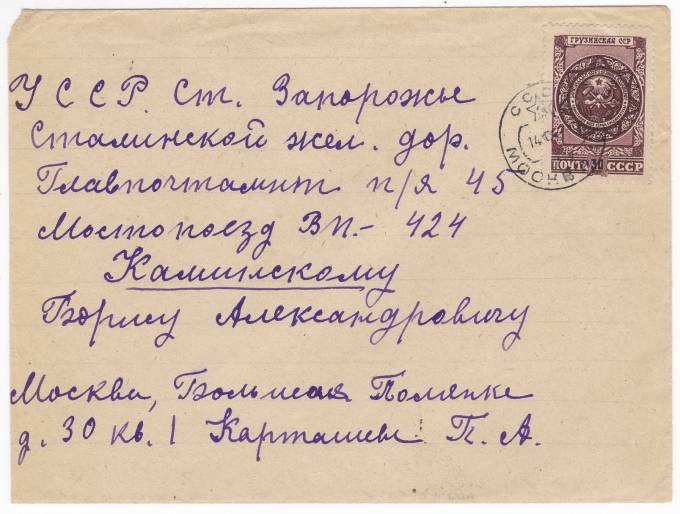 УССР Ст. Запорожье
Сталинской жел. дор.
Главпочтамт п/я 45
Мостопоезд ВП.- 424
Каминскому
Борису Александровичу
Москва, Большая Полянке
д. 30 кв. 1 Карташевы П. А.
ГРУЗИНСКАЯ ССР
ПОЧТА 30 СССР
МОСКВА